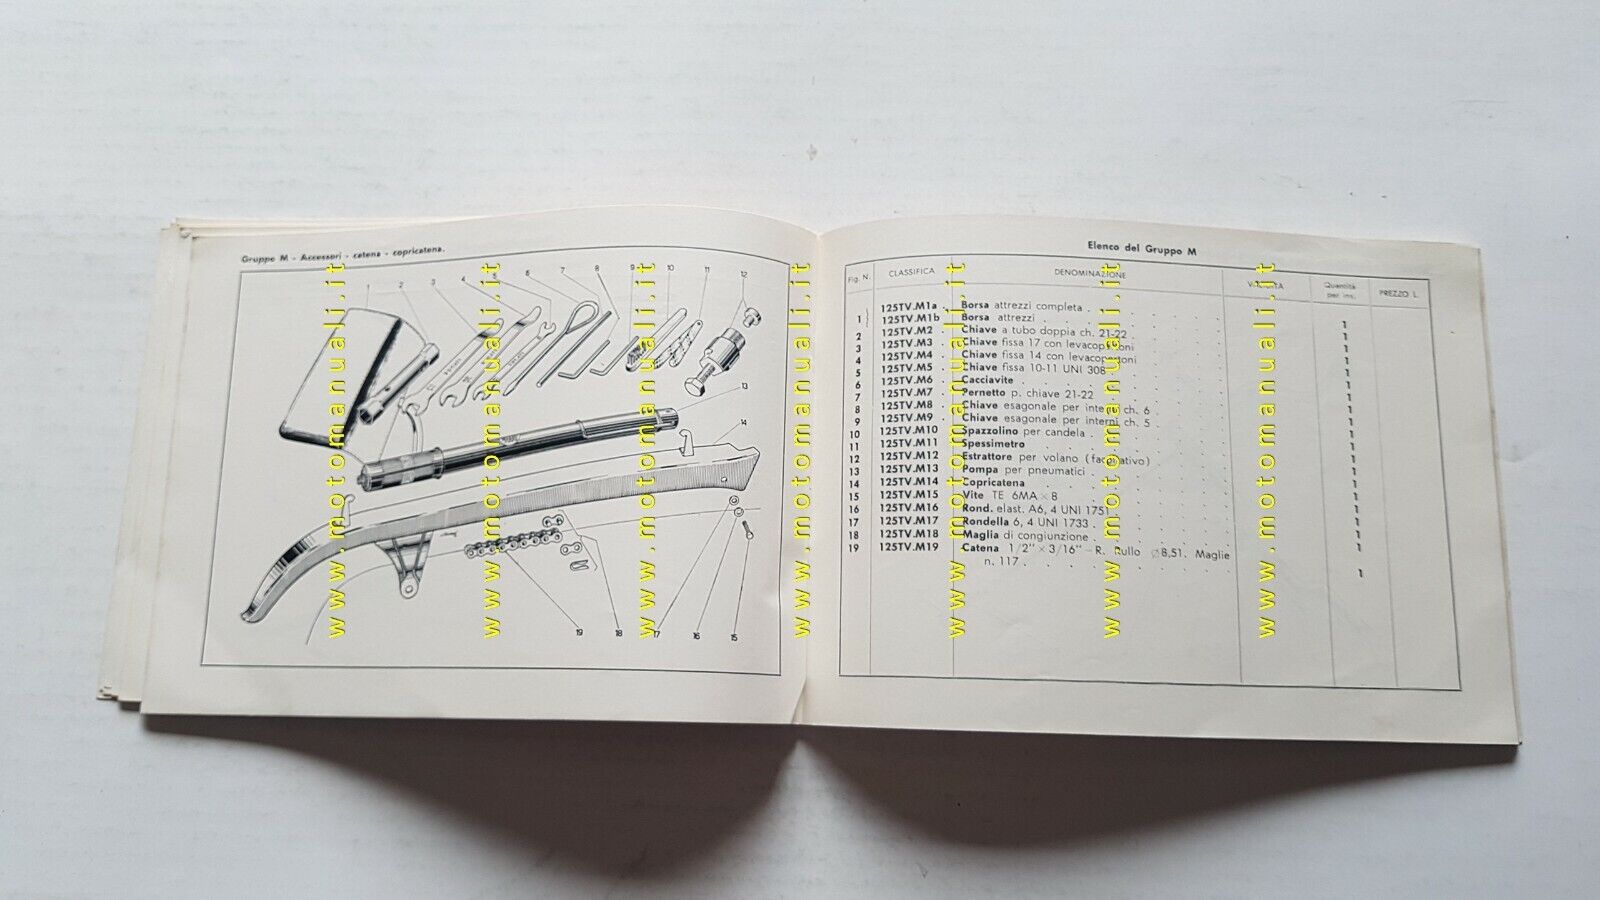 Gruppo M - Accessori - catena - copricatena.
1 2 3 4 5 6 7 8 9 10 11 12
13
14
19 18 17 16 15
Elenco del Gruppo M
Fig. N. CLASSIFICA DENOMINAZIONE Quantità per ins. PREZZO L.
125TV.M1a . Borsa attrezzi completa .
1 125TV.M1b . Borsa attrezzi . 1
2 125TV.M2 . Chiave a tubo doppia ch. 21-22 . 1
3 125TV.M3 . Chiave fissa 17 con levacopertoni 1
4 125TV.M4 . Chiave fissa 14 con levacopertoni 1
5 125TV.M5 . Chiave fissa 10-11 UNI 308 1
6 125TV.M6 . Cacciavite . 1
7 125TV.M7 . Pernetto p. chiave 21-22 . 1
8 125TV.M8 . Chiave esagonale per interni ch. 6 1
9 125TV.M9 . Chiave esagonale per interni ch. 5 1
10 125TV.M10 Spazzolino per candela . 1
11 125TV.M11 Spessimetro 1
12 125TV.M12 Estrattore per volano (facoltativo) 1
13 125TV.M13 Pompa per pneumatici . 1
14 125TV.M14 Copricatena 1
15 125TV.M15 Vite TE 6MA × 8 1
16 125TV.M16 Rond. elast. A6, 4 UNI 1751 1
17 125TV.M17 Rondella 6, 4 UNI 1733 . 1
18 125TV.M18 Maglia di congiunzione . 1
19 125TV.M19 Catena 1/2" × 3/16" - R. Rullo Ø 8,51. Maglie
n. 117 . 1
www.motomanuali.it
www.motomanuali.it
www.motomanuali.it
www.motomanuali.it
www.motomanuali.it
www.motomanuali.it
www.motomanuali.it